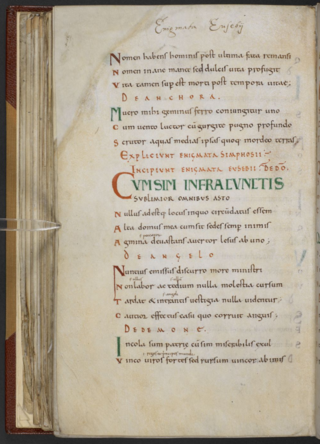 Enigmata Eusebij
Nomen habens hominis post ultima fata remansi
Nomen inane manet sed dulcis vita profugit
Vita tamen superest morti post tempora vitae;
DE ANCHORA.
Mucro mihi geminus ferro coniungitur uno
Cum vento luctor cū gurgite pugno profundo
Scrutor aquas medias ipsas quoq mordeo terras;
EXPLICIUNT ENIGMATA SIMPHOSII
INCIPIUNT ENIGMATA EUSEBII. DE DŌ.
CUM SIM INFRA CUNCTIS
SUBLIMIOR OMNIBUS ASTO
Nullus adestq locus inquo circūdatus essem
Alta domus mea cum sit sedes semp inimis
Agmina devastans avertor lesus ab uno;
DE ANGELO
Nuncius emissus discurro more ministri
Non labor ac tedium nulla molestia cursum
Tardat & intrantis vestigia nulla videntur;
Cautior effectus casu quo corruit anguis;
DE DEMONE
Incola sum patrie cū sim miserabilis exol
Vinco viros fortes sed rursum vincor ab imis